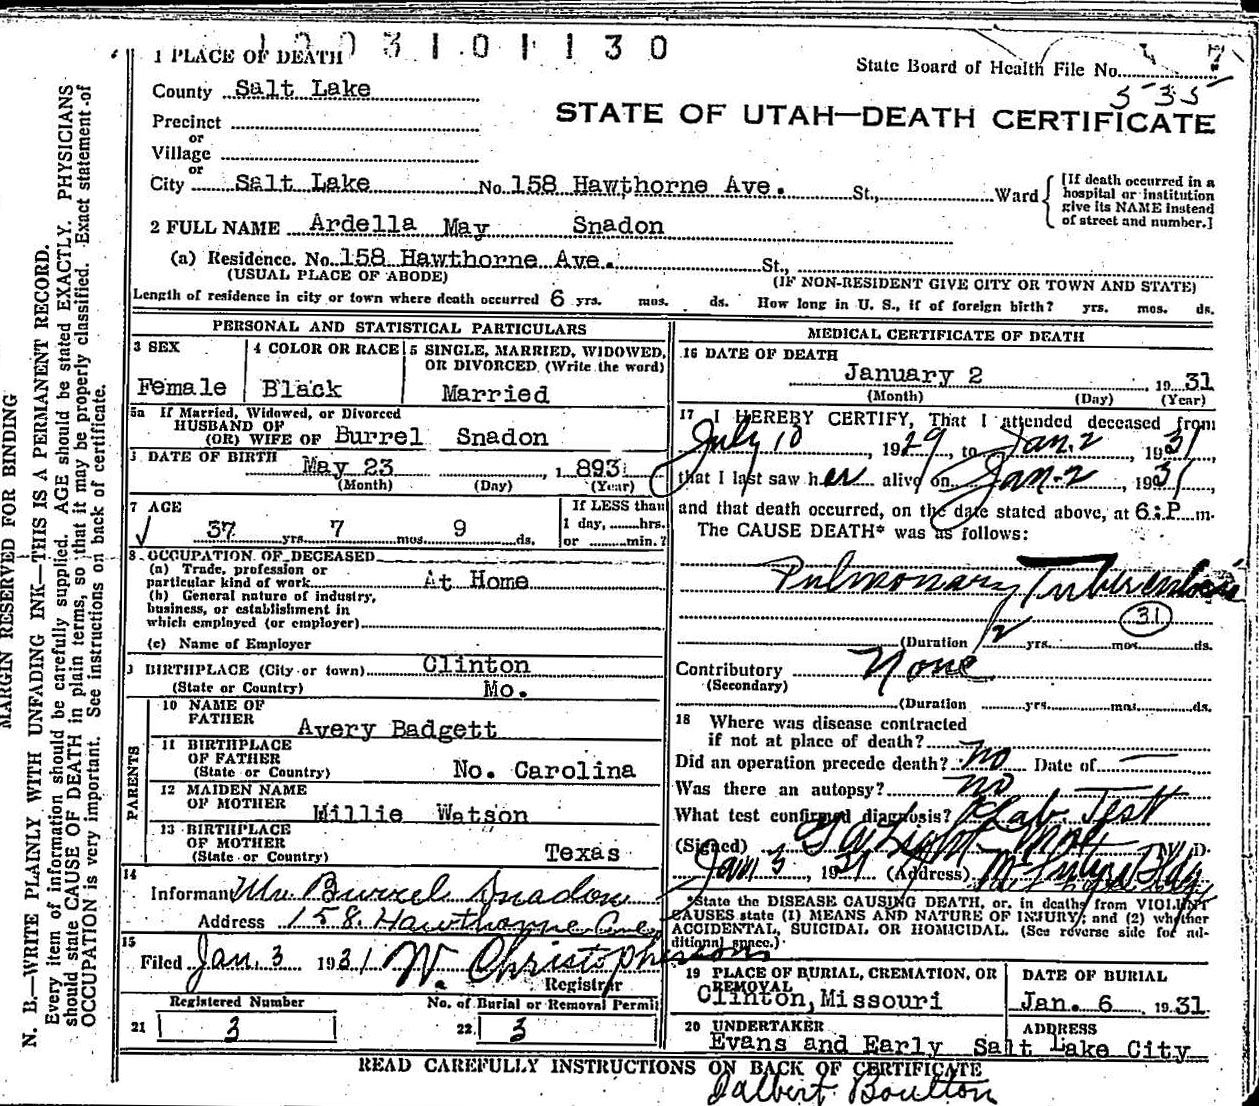 1 PLACE OF DEATH
3 1 0 1 1 3 0
State Board of Health File No.
535
County Salt Lake
STATE OF UTAH—DEATH CERTIFICATE
Precinct
or
Village
or
City Salt Lake No. 158 Hawthorne Ave. St., Ward
[If death occurred in a hospital or institution give its NAME instead of street and number.]
2 FULL NAME Ardella May Snadon
(a) Residence. No. 158 Hawthorne Ave. St.,
(USUAL PLACE OF ABODE) (IF NON-RESIDENT GIVE CITY OR TOWN AND STATE)
Length of residence in city or town where death occurred 6 yrs. mos. ds. How long in U. S., if of foreign birth? yrs. mos. ds.
PERSONAL AND STATISTICAL PARTICULARS
3 SEX
Female
4 COLOR OR RACE
Black
5 SINGLE, MARRIED, WIDOWED,
OR DIVORCED (Write the word)
Married
5a If Married, Widowed, or Divorced
HUSBAND OF
(OR) WIFE OF Burrel Snadon
DATE OF BIRTH May 23, 1893
(Month) (Day) (Year)
7 AGE
37 yrs. 7 mos. 9 ds.
If LESS than
1 day, hrs.
or min.?
8 OCCUPATION OF DECEASED
(a) Trade, profession or
particular kind of work At Home
(b) General nature of industry,
business, or establishment in
which employed (or employer)
(c) Name of Employer
9 BIRTHPLACE (City or town) Clinton
(State or Country) Mo.
PARENTS
10 NAME OF
FATHER Avery Badgett
11 BIRTHPLACE
OF FATHER
(State or Country) No. Carolina
12 MAIDEN NAME
OF MOTHER Millie Watson
13 BIRTHPLACE
OF MOTHER
(State or Country) Texas
14
Informant Mr. Burrel Snadon
Address 158 Hawthorne Ave
15
Filed Jan. 3 1931 W. Christopherson
Registrar
Registered Number No. of Burial or Removal Permit
21 3 22 3
MEDICAL CERTIFICATE OF DEATH
16 DATE OF DEATH
January 2 1931
(Month) (Day) (Year)
17 I HEREBY CERTIFY, That I attended deceased from
July 10, 1929, to Jan. 2, 1931,
that I last saw her alive on Jan. 2, 1931,
and that death occurred, on the date stated above, at 6:P m.
The CAUSE DEATH* was as follows:
Pulmonary Tuberculosis
31
(Duration 2 yrs. mos. ds.
Contributory None
(Secondary)
(Duration yrs. mos. ds.
18 Where was disease contracted
if not at place of death?
Did an operation precede death? no Date of —
Was there an autopsy? no
What test confirmed diagnosis? Lab Test
(Signed) M. D.
Jan 3, 1931 (Address)
*State the DISEASE CAUSING DEATH, or, in deaths from VIOLENT
CAUSES state (1) MEANS AND NATURE OF INJURY; and (2) whether
ACCIDENTAL, SUICIDAL OR HOMICIDAL. (See reverse side for ad-
ditional space.)
19 PLACE OF BURIAL, CREMATION, OR
REMOVAL
Clinton, Missouri
DATE OF BURIAL
Jan. 6 1931
20 UNDERTAKER ADDRESS
Evans and Early Salt Lake City
READ CAREFULLY INSTRUCTIONS ON BACK OF CERTIFICATE
Dalbert Boulton
MARGIN RESERVED FOR BINDING
N. B.—WRITE PLAINLY WITH UNFADING INK—THIS IS A PERMANENT RECORD.
Every item of information should be carefully supplied. AGE should be stated EXACTLY. PHYSICIANS
should state CAUSE OF DEATH in plain terms, so that it may be properly classified. Exact statement of
OCCUPATION is very important. See instructions on back of certificate.